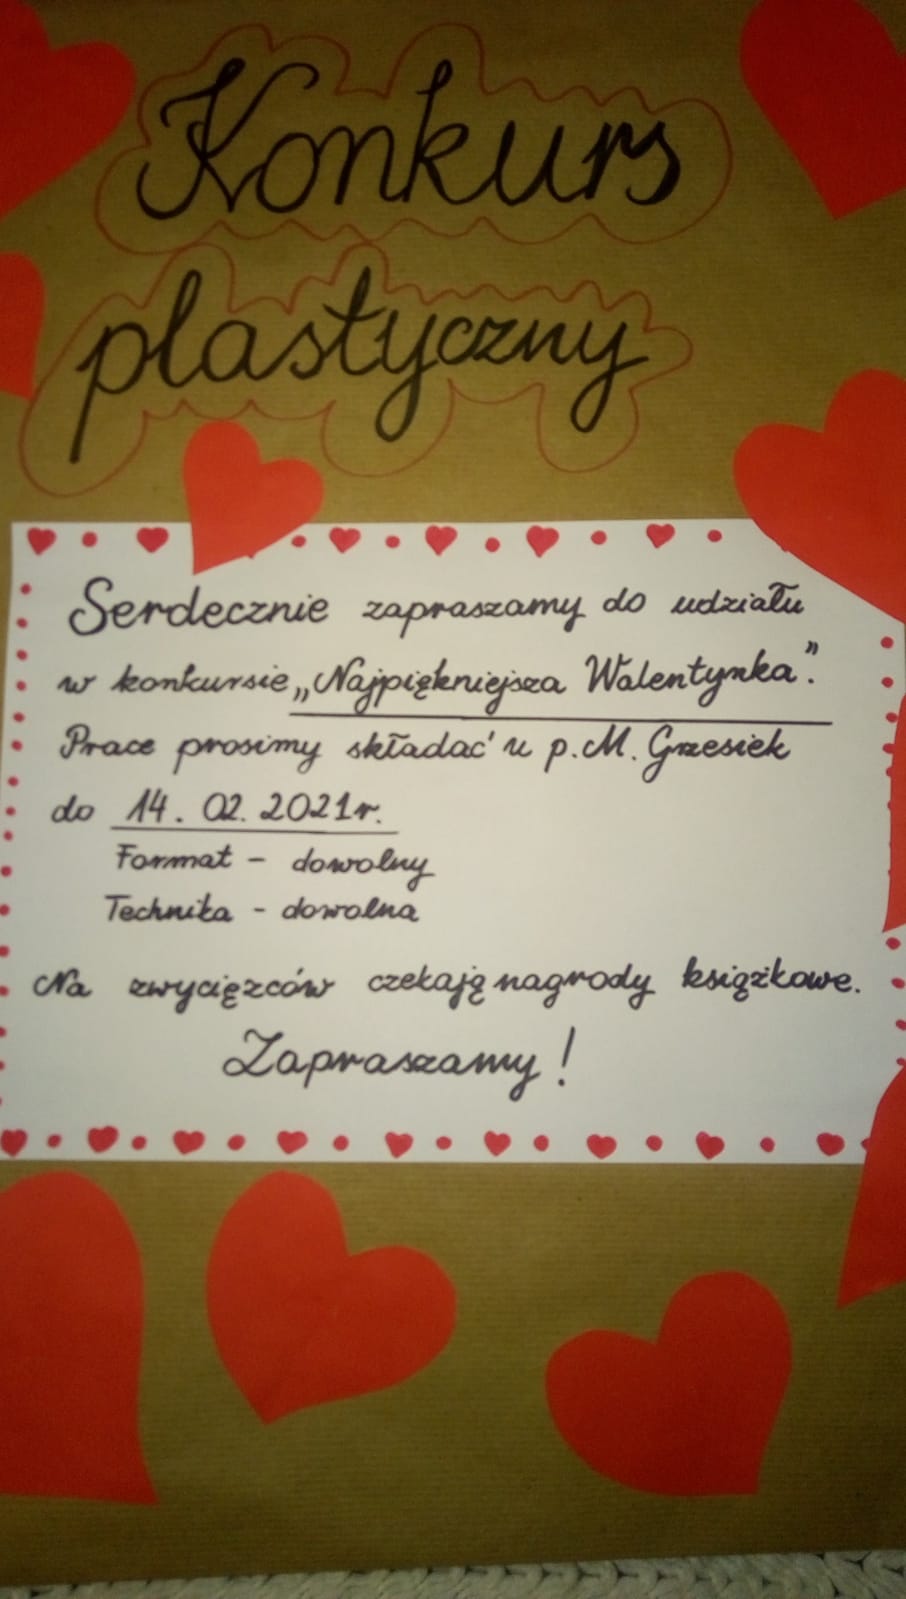 Konkurs
plastyczny
Serdecznie zapraszamy do udziału
w konkursie „Najpiękniejsza Walentynka”.
Prace prosimy składać u p. M. Grzesiek
do 14. 02. 2021r.
Format - dowolny
Technika - dowolna
Na zwycięzców czekają nagrody książkowe.
Zapraszamy!